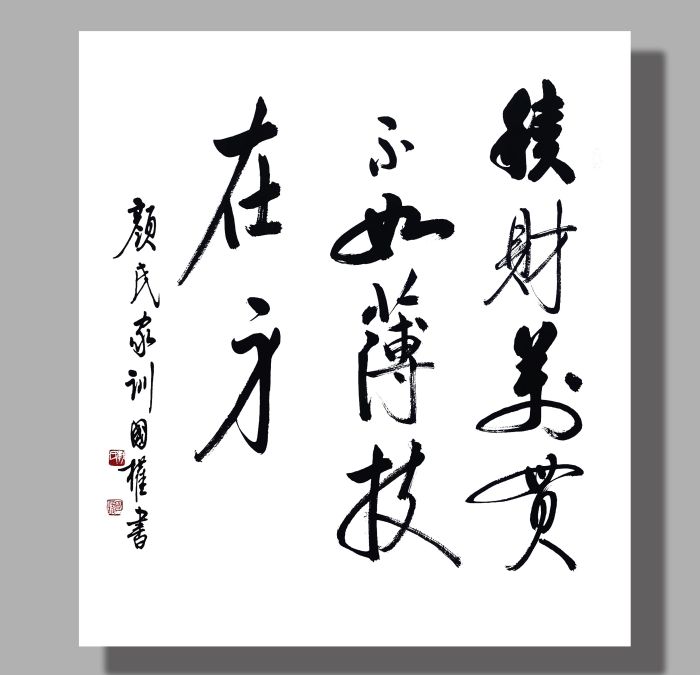 積財萬貫
不如薄技
在身
顏氏家训國權書